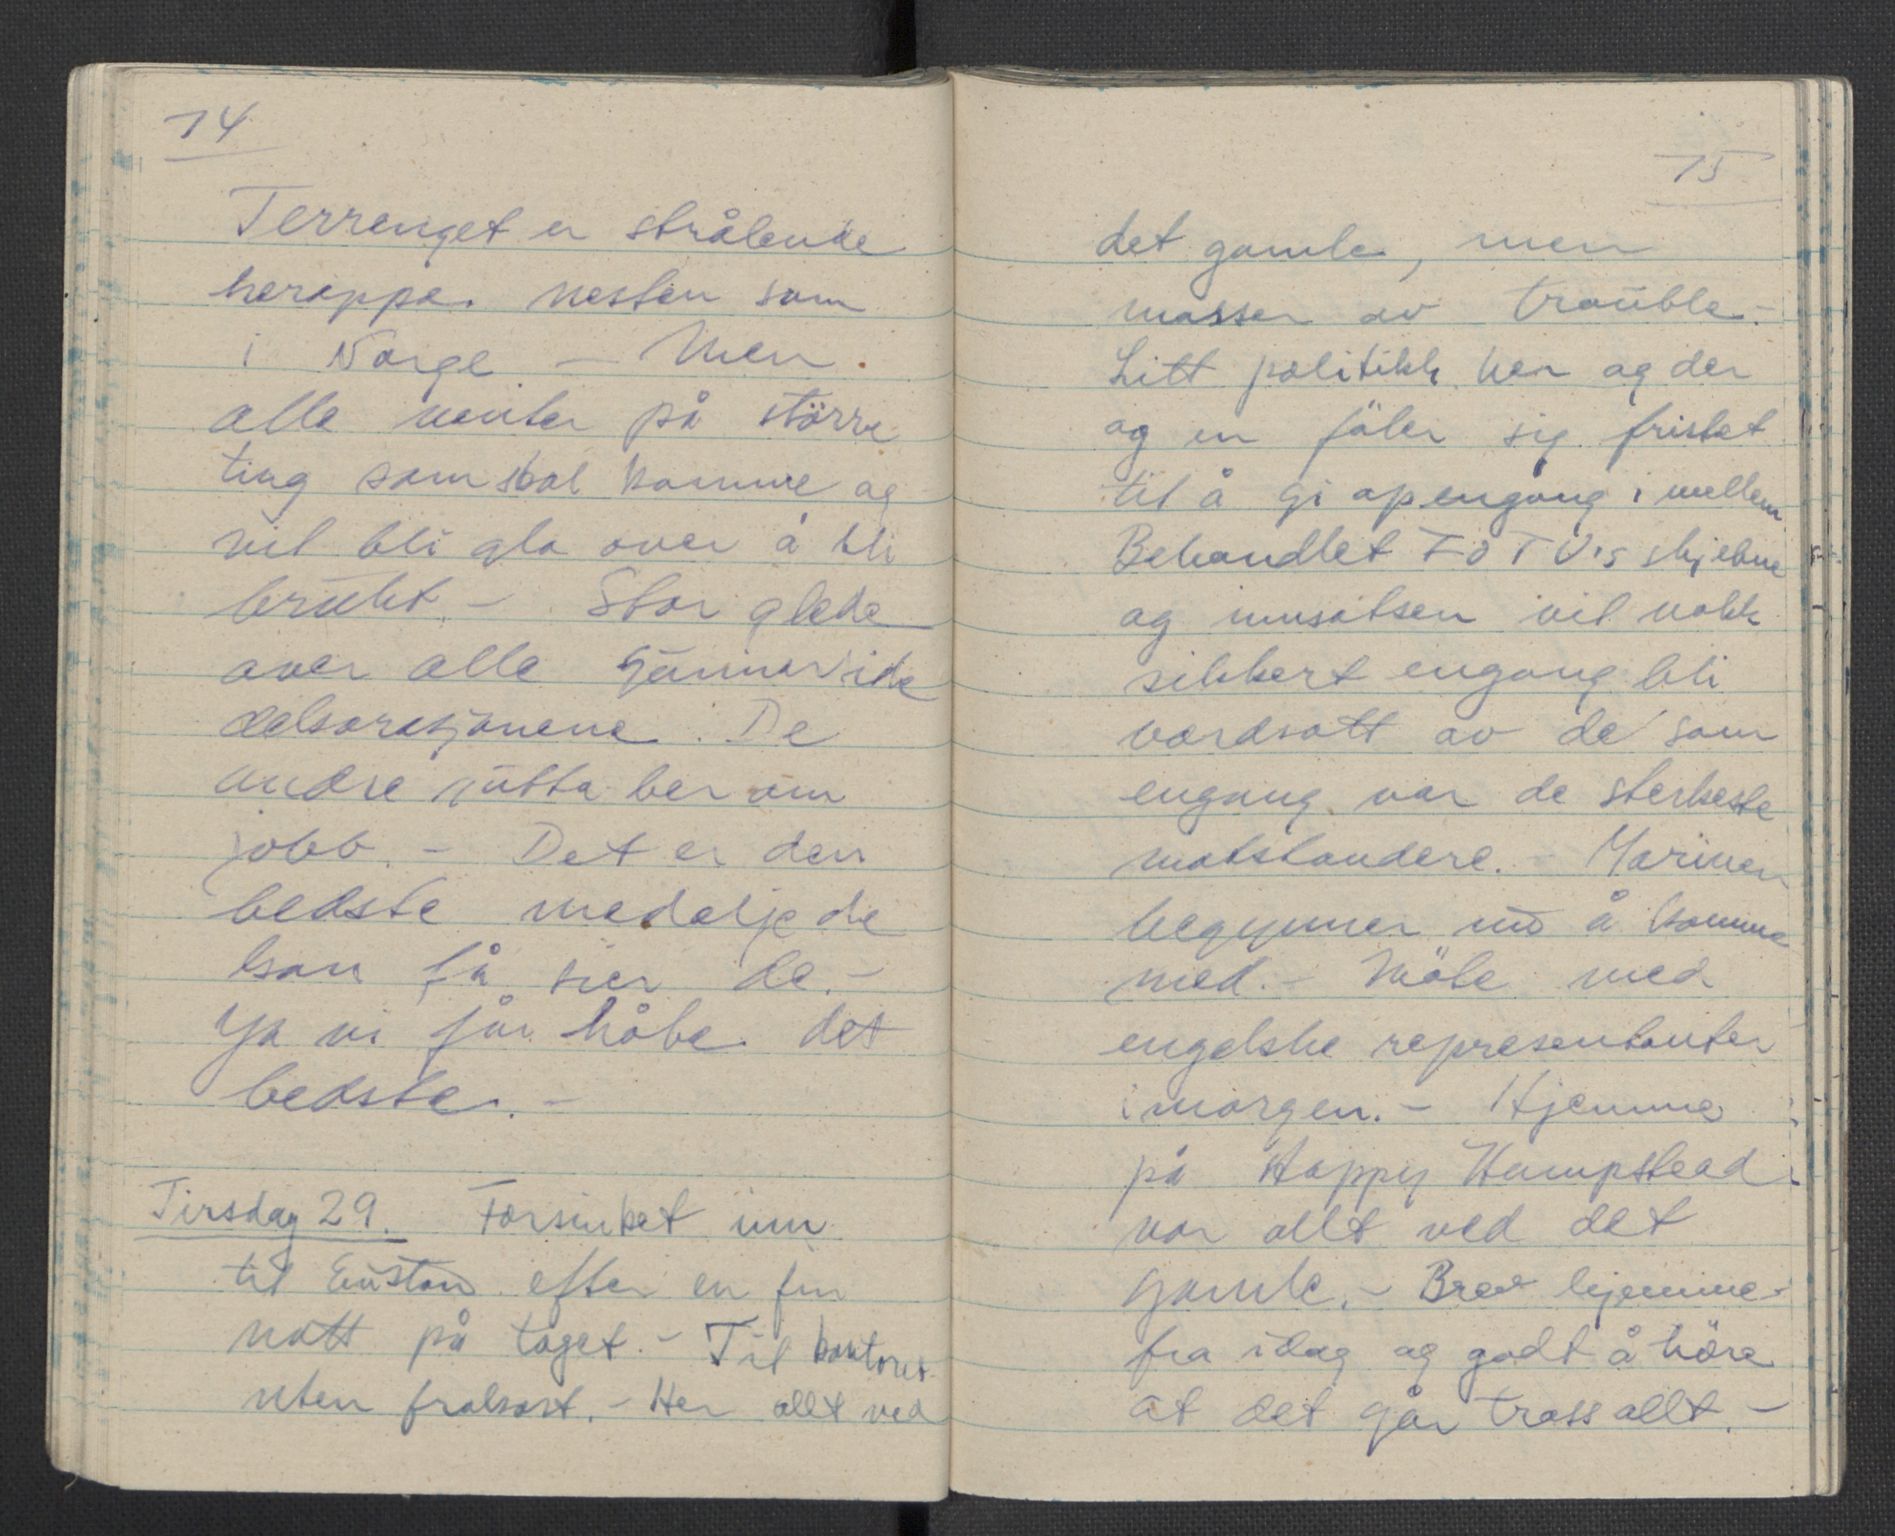 14
Terrenget er strålende
heroppe. nesten som
i Norge — Men
alle venter på större
ting som skal komme og
vil bli gla over å bli
brukt. — Stor glede
over alle
dekorasjonene. De
andre gutta ber om
jobb. — Det er den
bedste medalje de
kan få sier de. —
Ja vi får håbe det
bedste. —
Tirsdag 29. Forsinket inn
til Euston efter en fin
natt på toget. — Til kontoret
uten frokost. — Her allt ved
15
det gamle, men
masser av trouble. —
Litt politikk her og der
og en föler sig fristet
til å gi op engang i mellem
Behandlet FOTU's skjebne
og innsatsen vil nokk
sikkert engang bli
verdsatt av de som
engang var de sterkeste
motstandere. — Marinen
begynner nå å komme
med. — Möte med
engelske representanter
imorgen. — Hjemme
på Happy Hampstead
var allt ved det
gamle. — Brev hjemme-
fra idag og godt å höre
at det går tross allt. —